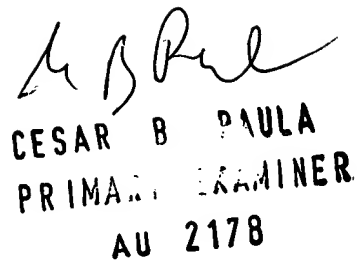 CESAR B PAULA
PRIMARY EXAMINER
AU 2178